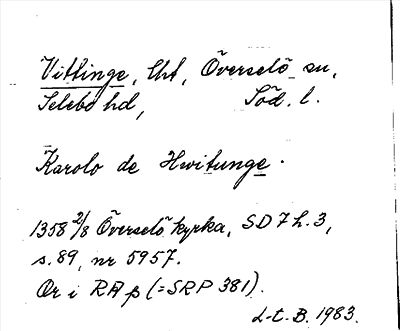 Vittinge, Lht, Överselö sn,
Selebo hd, Söd. l.
Karolo de Hwitunge.
1358 2/8 Överselö kyrka, SD 7 h. 3,
s. 89, nr 5957.
Or i RA p (= SRP 381).
L-t. B. 1983.